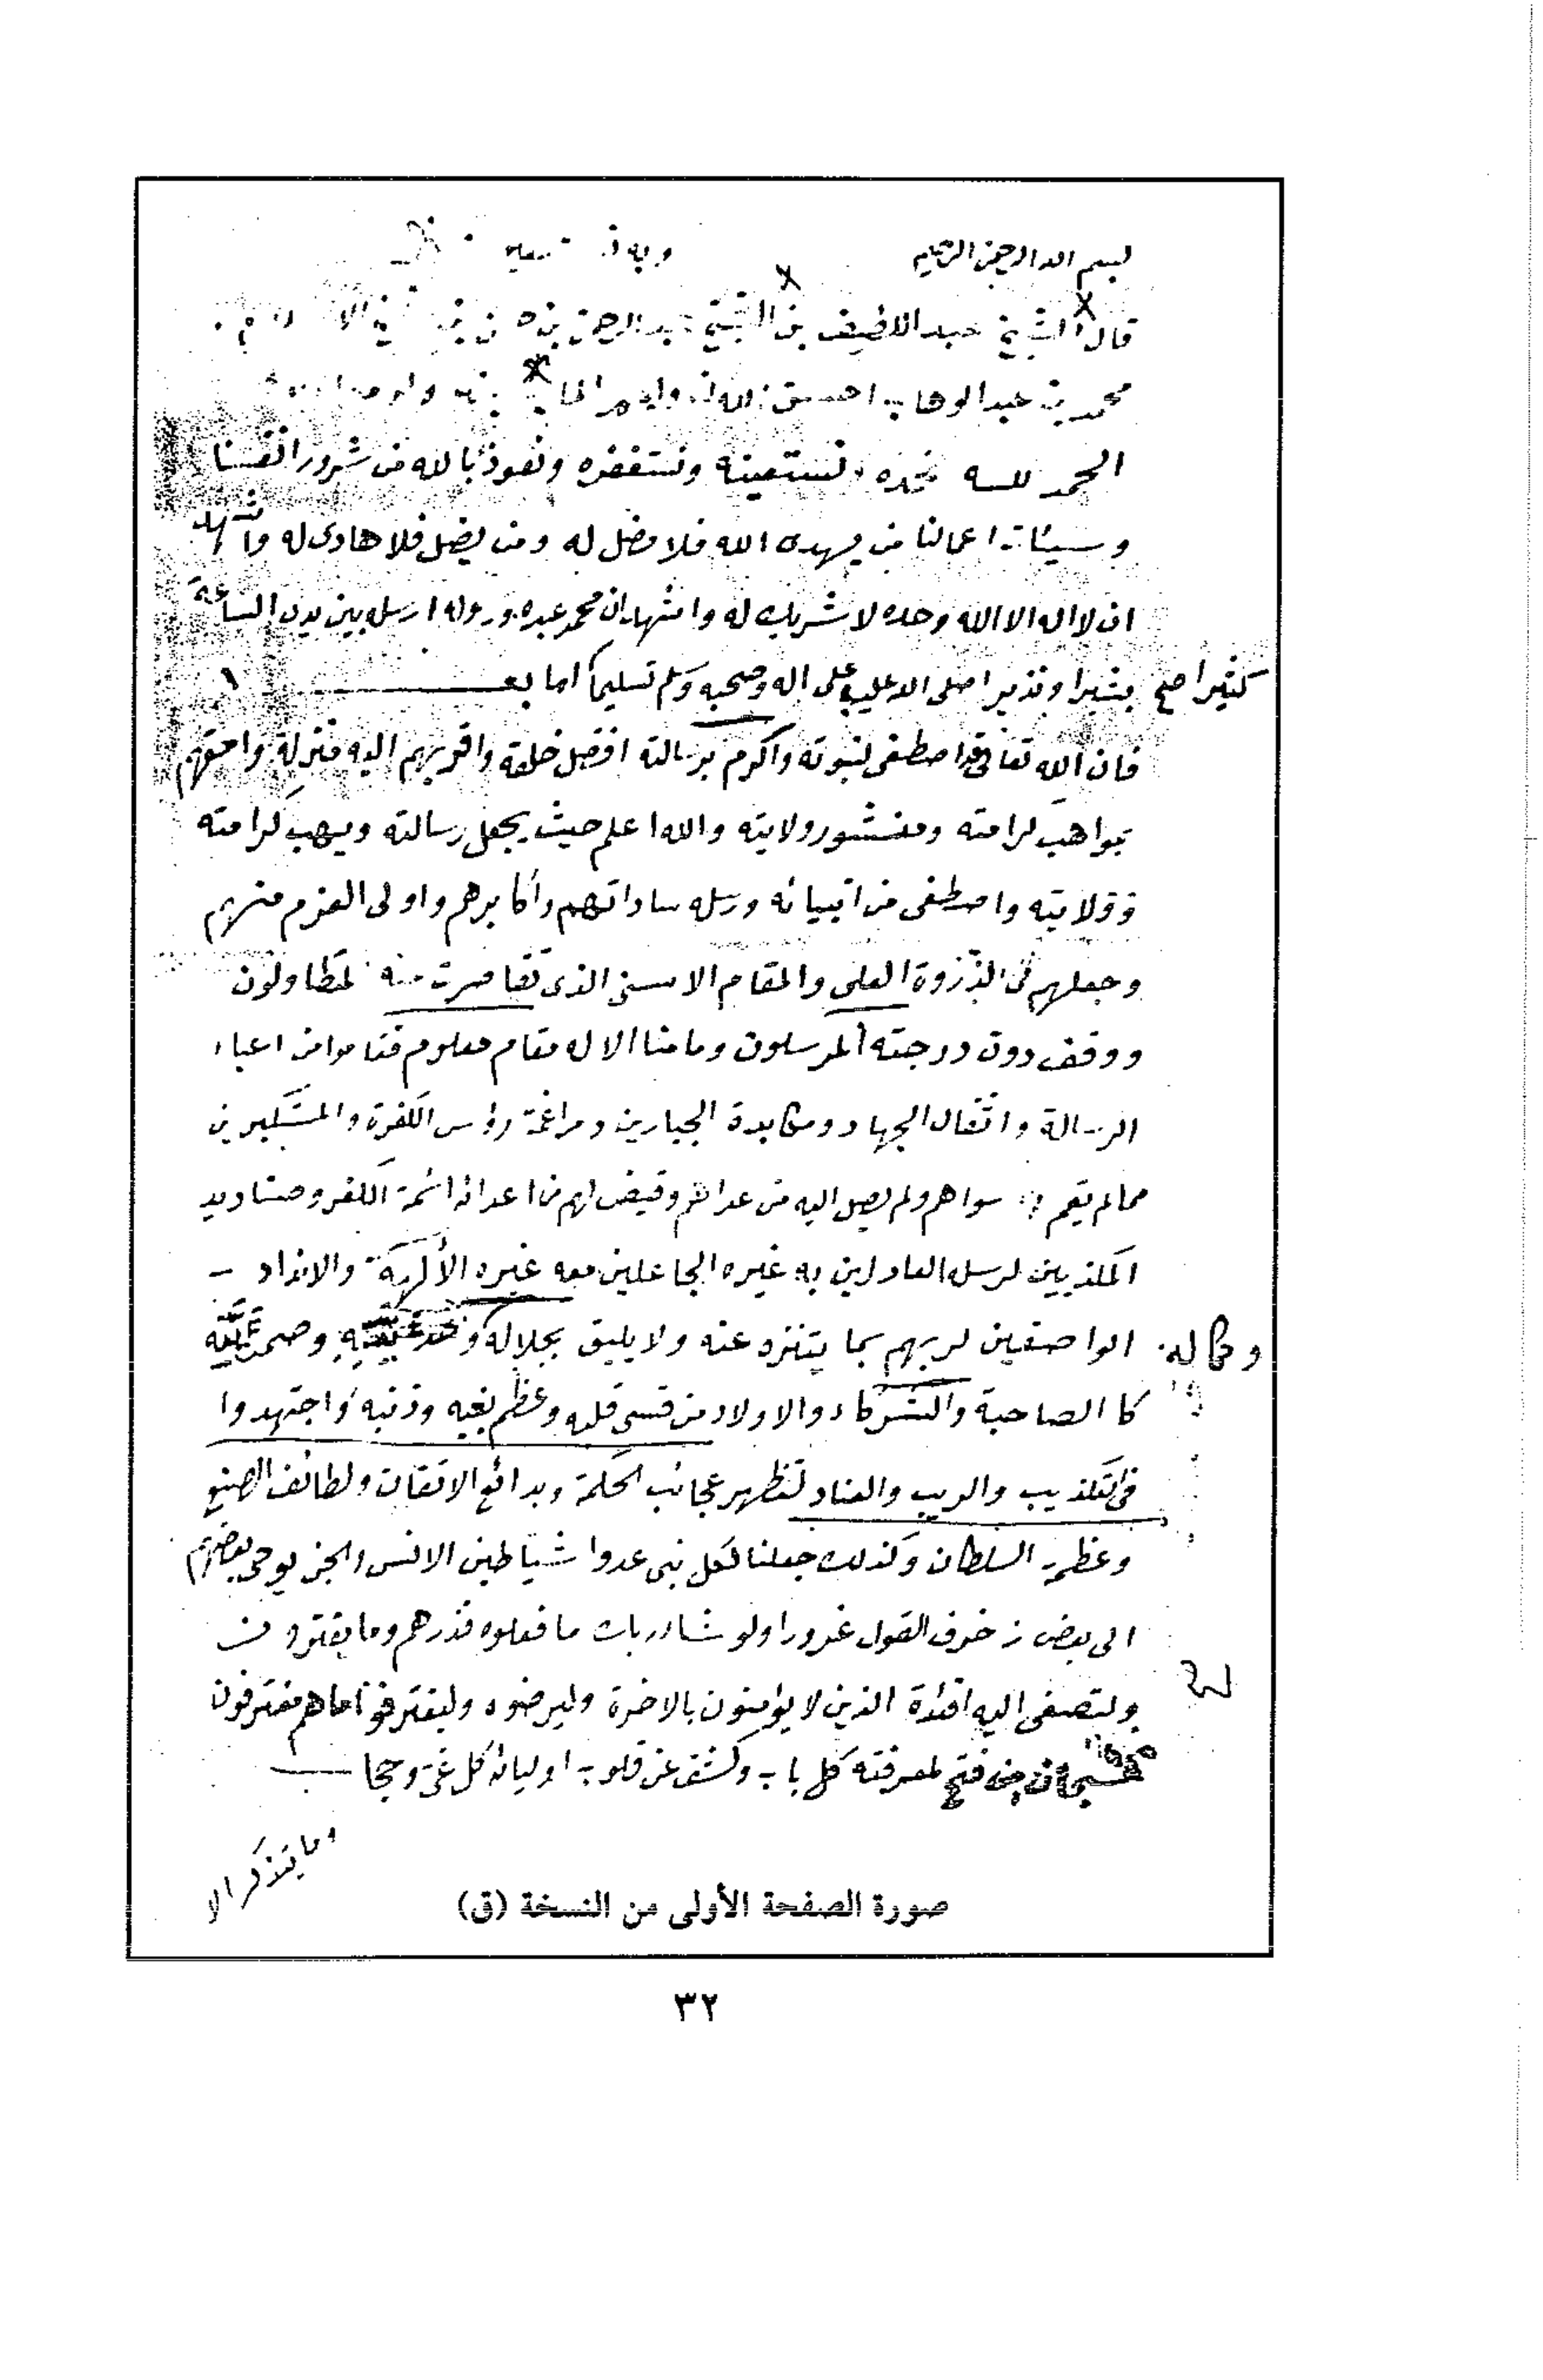 بسم الله الرحمن الرحيم وبه
قال الشيخ عبد اللطيف بن الشيخ عبد الرحمن بن
محمد بن عبد الوهاب احسن الله
الحمد لله نحمده ونستعينه ونستغفره ونعوذ بالله من شرور انفسنا
وسيئات اعمالنا من يهده الله فلا مضل له ومن يضلل فلا هادى له واشهد
ان لا اله الا الله وحده لا شريك له واشهد ان محمد عبده ورسوله ارسله بين يدى الساعة
بشيرا ونذيرا صلى الله عليه وعلى اله وصحبه وسلم تسليما كثيرا صح اما بعــد
فان الله تعالى قد اصطفى لنبوته واكرم برسالته افضل خلقه واقربهم اليه منزلة واحقهم
بمواهب كرامته ومنشور ولايته والله اعلم حيث يجعل رسالته ويهب كرامته
وولايته واصطفى من انبيائه ورسله ساداتهم واكابرهم واولى العزم منهم
وجعلهم فى الذروة العلى والمقام الاسنى الذى تقاصرت عنه المتطاولون
ووقف دون درجته المرسلون وما منا الا له مقام معلوم فقاموا من اعباء
الرسالة واثقال الجهاد ومكابدة الجبارين ومراغمة رؤس الكفرة والمتكبرين
مما لم يقم به سواهم ولم يصل اليه من عداهم وقيض لهم من اعدائه ائمة الكفر وصناديد
المكذبين لرسله العادلين به غيره الجاعلين معه غيره الألهة والانداد
الواصفين لربهم بما يتنزه عنه ولا يليق بجلاله وكماله
كا الصاحبة والشركاء والاولاد من قسى قلبه وعظم بغيه وذنبه واجتهدوا
فى التكذيب والريب والعناد لتظهر عجائب الحكمة وبدائع الاتقان ولطائف الصنع
وعظمة السلطان وكذلك جعلنا لكل نبى عدوا شياطين الانس والجن يوحى بعضهم
الى بعض زخرف القول غرورا ولو شاء ربك ما فعلوه فذرهم وما يفترون
ولتصغى اليه افئدة الذين لا يؤمنون بالاخرة وليرضوه وليقترفوا ما هم مقترفون
فسبحان من فتح لمعرفته كل باب وكشف عن قلوب اوليائه كل غى وحجاب
وما يتذكر الا
صورة الصفحة الأولى من النسخة (ق)
٣٢